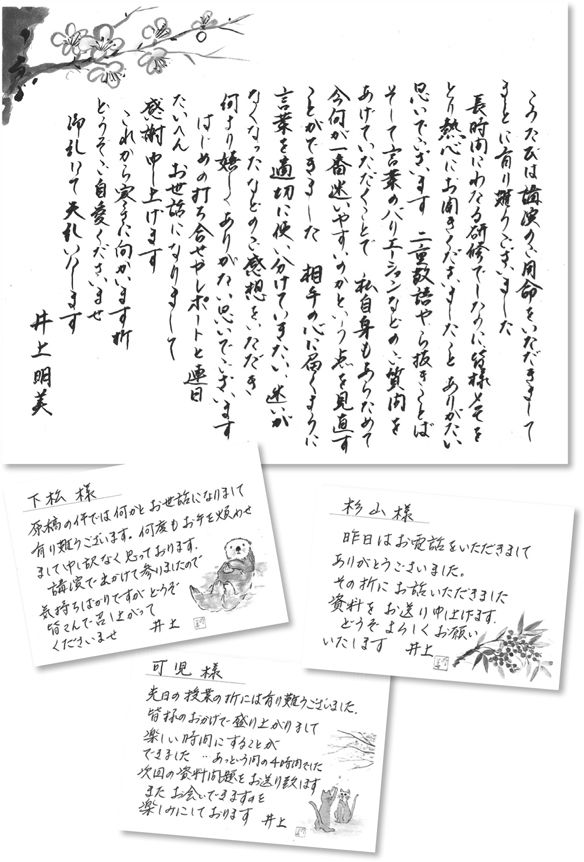 このたびは講演のご用命をいただきまして
まことに有り難うございました
長時間にわたる研修でしたのに皆様メモを
とり熱心にお聞きくださいましたこと ありがたい
思いでございます 二重敬語やら抜きことば
そして言葉のバリエーションなどのご質問を
あげていただくことで 私自身もあらためて
今何が一番迷いやすいのかという点を見直す
ことができました 相手の心に届くように
言葉を適切に使い分けていきたい、迷いが
なくなったなどのご感想をいただき
何より嬉しくありがたい思いでございます
はじめの打ち合せやレポートと連日
たいへん お世話になりまして
感謝申し上げます
これから寒さに向かいます折
どうぞご自愛くださいませ
御礼にて 失礼いたします
井上明美
下松様
原稿の件では何かとお世話になりまして
有り難うございます。何度もお手を煩わせ
まして申し訳なく思っております。
講演で出かけて参りましたので
気持ちばかりですが どうぞ
皆さんで召し上がって
くださいませ 井上
杉山様
昨日はお電話をいただきまして
ありがとうございました。
その折にお話いただきました
資料をお送り申し上げます。
どうぞ よろしくお願い
いたします 井上
可児様
先日の授業の折には有り難うございました。
皆様のおかげで盛り上がりまして
楽しい時間にすることが
できました ‥あっという間の4時間でした
次回の資料問題をお送り致します
また お会いできますのを
楽しみにしております 井上